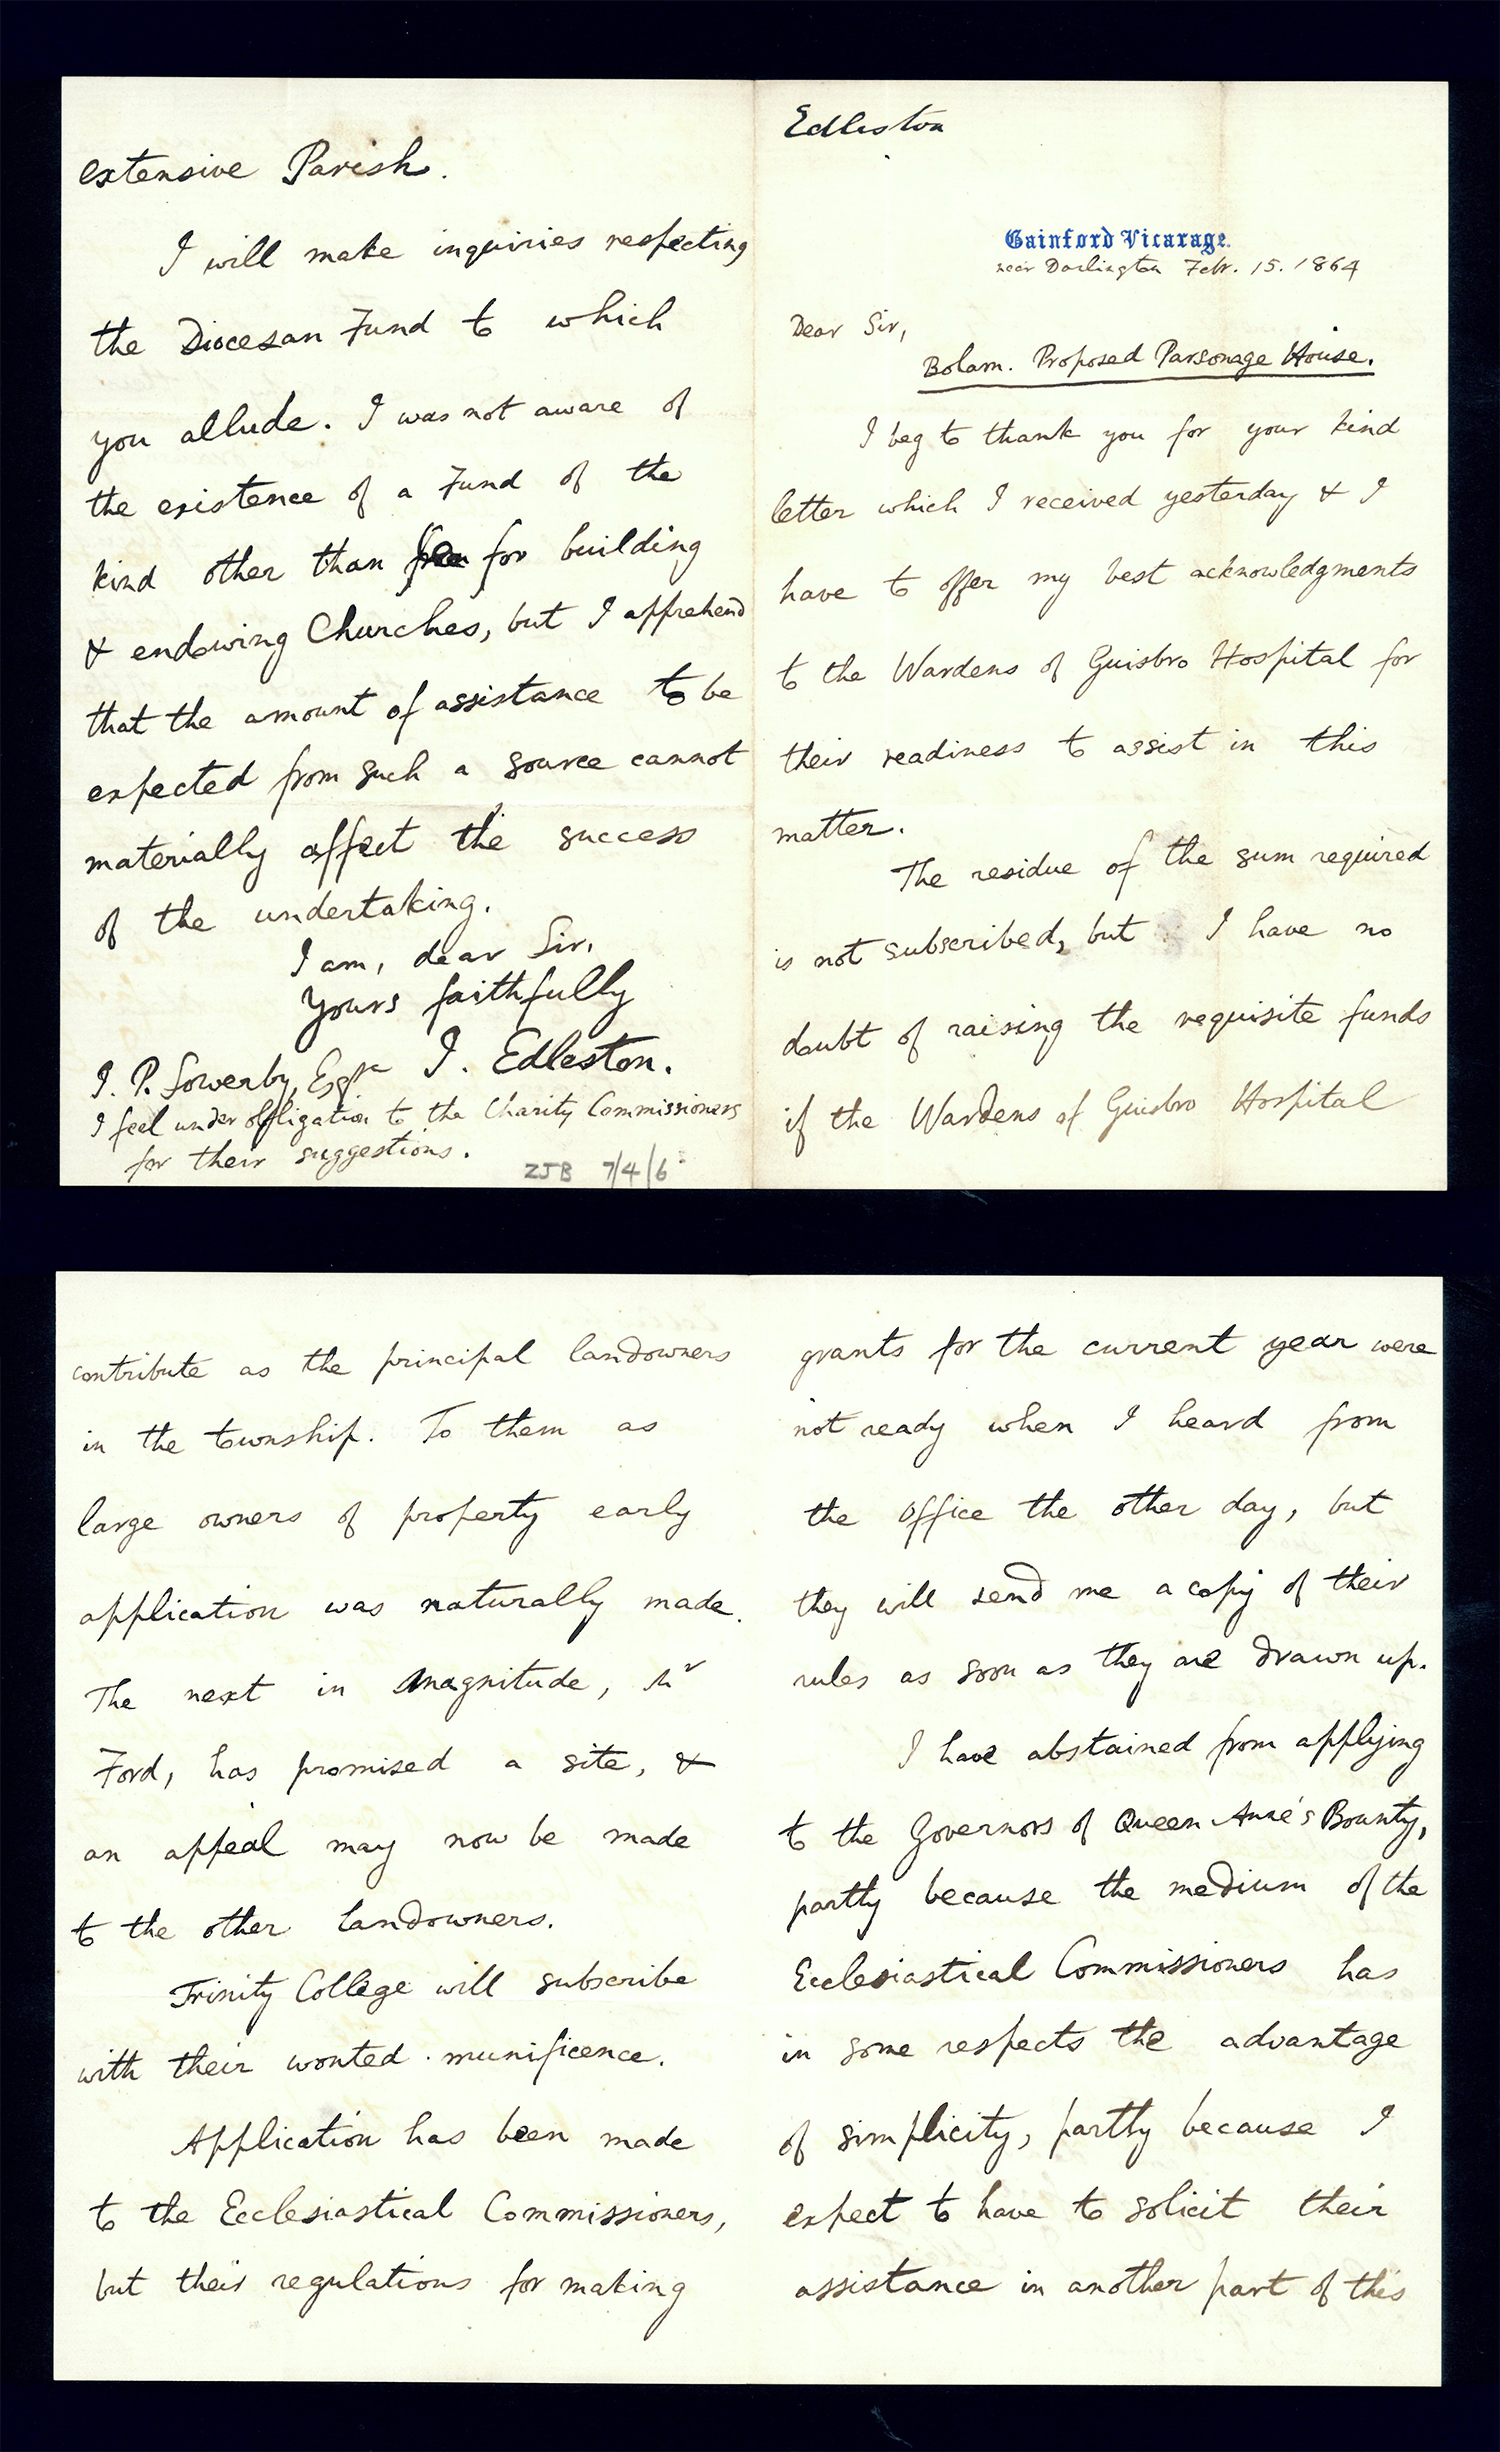 Edleston
Gainford Vicarage.
near Darlington Febr. 15. 1864
Dear Sir,
Bolam. Proposed Parsonage House.
I beg to thank you for your kind
letter which I received yesterday & I
have to offer my best acknowledgments
to the Wardens of Guisbro Hospital for
their readiness to assist in this
matter.
The residue of the sum required
is not subscribed, but I have no
doubt of raising the requisite funds
if the Wardens of Guisbro Hospital
contribute as the principal landowners
in the township. To them as
large owners of property early
application was naturally made.
The next in magnitude, Mr
Ford, has promised a site, &
an appeal may now be made
to the other landowners.
Trinity College will subscribe
with their wonted munificence.
Application has been made
to the Ecclesiastical Commissioners,
but their regulations for making
grants for the current year were
not ready when I heard from
the Office the other day, but
they will send me a copy of their
rules as soon as they are drawn up.
I have abstained from applying
to the Governors of Queen Anne's Bounty,
partly because the medium of the
Ecclesiastical Commissioners has
in some respects the advantage
of simplicity, partly because I
expect to have to solicit their
assistance in another part of this
extensive Parish.
I will make inquiries respecting
the Diocesan Fund to which
you allude. I was not aware of
the existence of a Fund of the
kind other than for building
& endowing Churches, but I apprehend
that the amount of assistance to be
expected from such a source cannot
materially affect the success
of the undertaking.
I am, dear Sir,
Yours faithfully
J. Edleston.
J. P. Sowerby, Esqre
I feel under obligation to the Charity Commissioners
for their suggestions.
ZJB 7/4/6